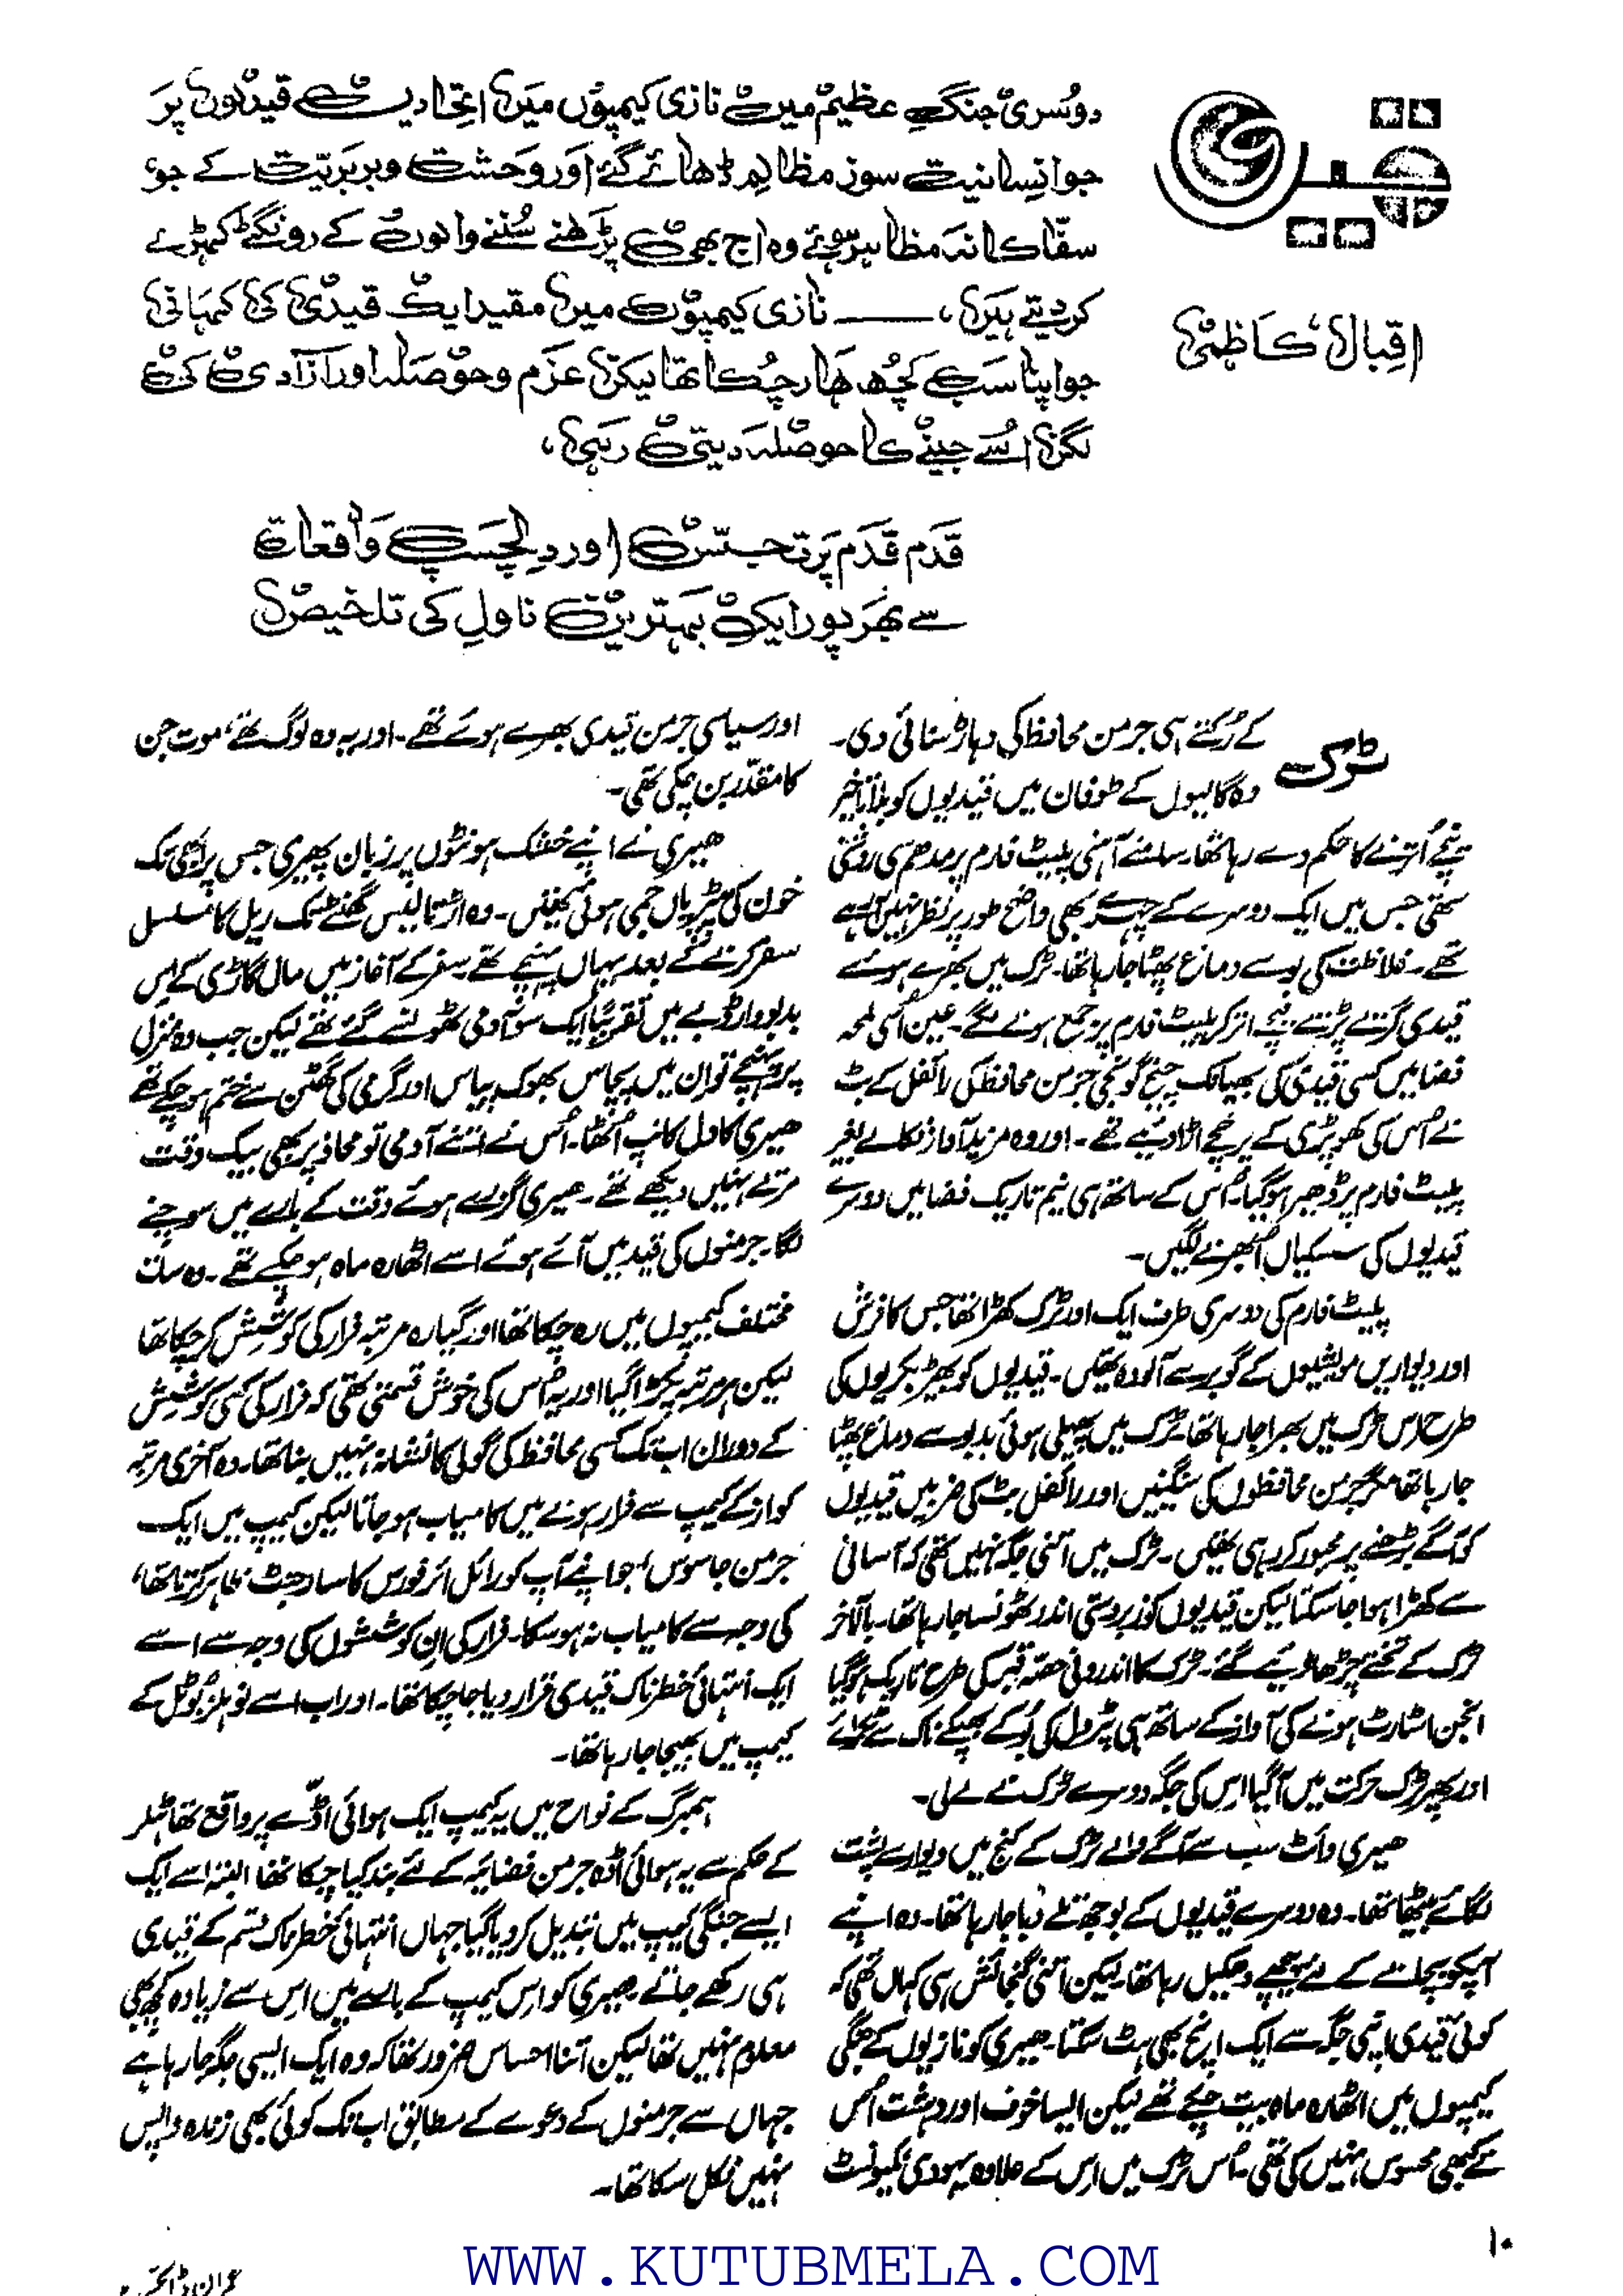 قیدی
اقبال کاظمی
دوسری جنگ عظیم میں نازی کیمپوں میں اتحادی قیدیوں پر
جو انسانیت سوز مظالم ڈھائے گئے اور وحشت و بربریت کے جو
سفاکانہ مظاہر ہوئے وہ آج بھی پڑھنے سننے والوں کے رونگٹے کھڑے
کر دیتے ہیں، —— نازی کیمپوں میں مقید ایک قیدی کی کہانی
جو اپنا سب کچھ ہار چکا تھا لیکن عزم و حوصلہ اور آزادی کی
لگن اُسے جینے کا حوصلہ دیتی رہی،
قدم قدم پر تجسس اور دلچسپ واقعات
سے بھرپور ایک بہترین ناول کی تلخیص
ٹرک کے رُکتے ہی جرمن محافظ کی دہاڑ سنائی دی۔
وہ گالیوں کے طوفان میں قیدیوں کو بلا تاخیر
نیچے اُترنے کا حکم دے رہا تھا۔ سامنے آہنی پلیٹ فارم پر مدھم سی روشنی
تھی جس میں ایک دوسرے کے چہرے بھی واضح طور پر نظر نہیں آ رہے
تھے۔ غلاظت کی بو سے دماغ پھٹا جا رہا تھا۔ ٹرک میں بھرے ہوئے
قیدی گرتے پڑتے نیچے اتر کر پلیٹ فارم پر جمع ہونے لگے۔ عین اُسی لمحہ
فضا میں کسی قیدی کی بھیانک چیخ گونجی جرمن محافظ کی رائفل کے بٹ
نے اُس کی کھوپڑی کے پرخچے اڑا دیئے تھے۔ اور وہ مزید آواز نکالے بغیر
پلیٹ فارم پر ڈھیر ہو گیا۔ اُس کے ساتھ ہی نیم تاریک فضا میں دوسرے
قیدیوں کی سسکیاں اُبھرنے لگیں۔
پلیٹ فارم کی دوسری طرف ایک اور ٹرک کھڑا تھا جس کا فرش
اور دیواریں مویشیوں کے گوبر سے آلودہ تھیں۔ قیدیوں کو بھیڑ بکریوں کی
طرح اس ٹرک میں بھرا جا رہا تھا۔ ٹرک میں پھیلی ہوئی بدبو سے دماغ پھٹا
جا رہا تھا مگر جرمن محافظوں کی سنگینیں اور رائفل بٹ کی ضربیں قیدیوں
کو آگے بڑھنے پر مجبور کر رہی تھیں۔ ٹرک میں اتنی جگہ نہیں تھی کہ آسانی
سے کھڑا ہوا جا سکتا لیکن قیدیوں کو زبردستی اندر ٹھونسا جا رہا تھا۔ بالآخر
ٹرک کے تختے چڑھا دیئے گئے۔ ٹرک کا اندرونی حصہ قبر کی طرح تاریک ہو گیا
انجن اسٹارٹ ہونے کی آواز کے ساتھ ہی پٹرول کی بُو کے بھپکے ناک سے ٹکرائے
اور پھر ٹرک حرکت میں آ گیا اس کی جگہ دوسرے ٹرک نے لے لی۔
ھیری وائٹ سب سے آگے والے ٹرک کے کنج میں دیوار سے پشت
لگائے بیٹھا تھا۔ وہ دوسرے قیدیوں کے بوجھ تلے دبا جا رہا تھا۔ وہ اپنے
آپکو بچانے کے لئے پیچھے دھکیل رہا تھا۔ لیکن اتنی گنجائش ہی کہاں تھی کہ
کوئی قیدی اپنی جگہ سے ایک انچ بھی ہٹ سکتا۔ ھیری کو نازیوں کے جنگی
کیمپوں میں اٹھارہ ماہ بیت چکے تھے لیکن ایسا خوف اور دہشت اُس
نے کبھی محسوس نہیں کی تھی۔ اُس ٹرک میں اس کے علاوہ یہودی کمیونسٹ
اور سیاسی جرمن قیدی بھرے ہوئے تھے۔ اور یہ وہ لوگ تھے، موت جن
کا مقدر بن چکی تھی۔
ھیری نے اپنے خشک ہونٹوں پر زبان پھیری جس پر ابھی تک
خون کی پٹریاں جمی ہوئی تھیں۔ وہ اڑتالیس گھنٹے تک ریل کا مسلسل
سفر کرنے کے بعد یہاں پہنچے تھے۔ سفر کے آغاز میں مال گاڑی کے اس
بدبودار ڈبے میں تقریباً ایک سو آدمی ٹھونسے گئے تھے لیکن جب وہ منزل
پر پہنچے تو ان میں پچاس بھوک پیاس اور گرمی کی گھٹن سے ختم ہو چکے تھے
ھیری کا دل کانپ اُٹھا۔ اُس نے اتنے آدمی تو محاذ پر بھی بیک وقت
مرتے نہیں دیکھے تھے۔ ھیری گزرے ہوئے وقت کے بارے میں سوچنے
لگا۔ جرمنوں کی قید میں آئے ہوئے اسے اٹھارہ ماہ ہو چکے تھے۔ وہ سات
مختلف کیمپوں میں رہ چکا تھا اور گیارہ مرتبہ فرار کی کوشش کر چکا تھا
لیکن ہر مرتبہ پکڑا گیا اور یہ اُس کی خوش قسمتی تھی کہ فرار کی کسی کوشش
کے دوران اب تک کسی محافظ کی گولی کا نشانہ نہیں بنا تھا۔ وہ آخری مرتبہ
کواز کے کیمپ سے فرار ہونے میں کامیاب ہو جاتا لیکن کیمپ میں ایک
جرمن جاسوس، جو اپنے آپ کو رائل ائر فورس کا سارجنٹ ظاہر کرتا تھا،
کی وجہ سے کامیاب نہ ہو سکا۔ فرار کی ان کوششوں کی وجہ سے اسے
ایک انتہائی خطرناک قیدی قرار دیا جا چکا تھا۔ اور اب اسے نوہلزبوٹل کے
کیمپ میں بھیجا جا رہا تھا۔
ہمبرگ کے نواح میں یہ کیمپ ایک ہوائی اڈے پر واقع تھا ہٹلر
کے حکم سے یہ ہوائی اڈہ جرمن فضائیہ کے لئے بند کیا جا چکا تھا البتہ اسے ایک
ایسے جنگی کیمپ میں تبدیل کر دیا گیا جہاں انتہائی خطرناک قسم کے قیدی
ہی رکھے جاتے۔ ھیری کو اس کیمپ کے بارے میں اس سے زیادہ کچھ بھی
معلوم نہیں تھا لیکن اتنا احساس ضرور تھا کہ وہ ایک ایسی جگہ جا رہا ہے
جہاں سے جرمنوں کے دعوے کے مطابق اب تک کوئی بھی زندہ واپس
نہیں نکل سکا تھا۔
۱۰
WWW.KUTUBMELA.COM
عمران ڈائجسٹ